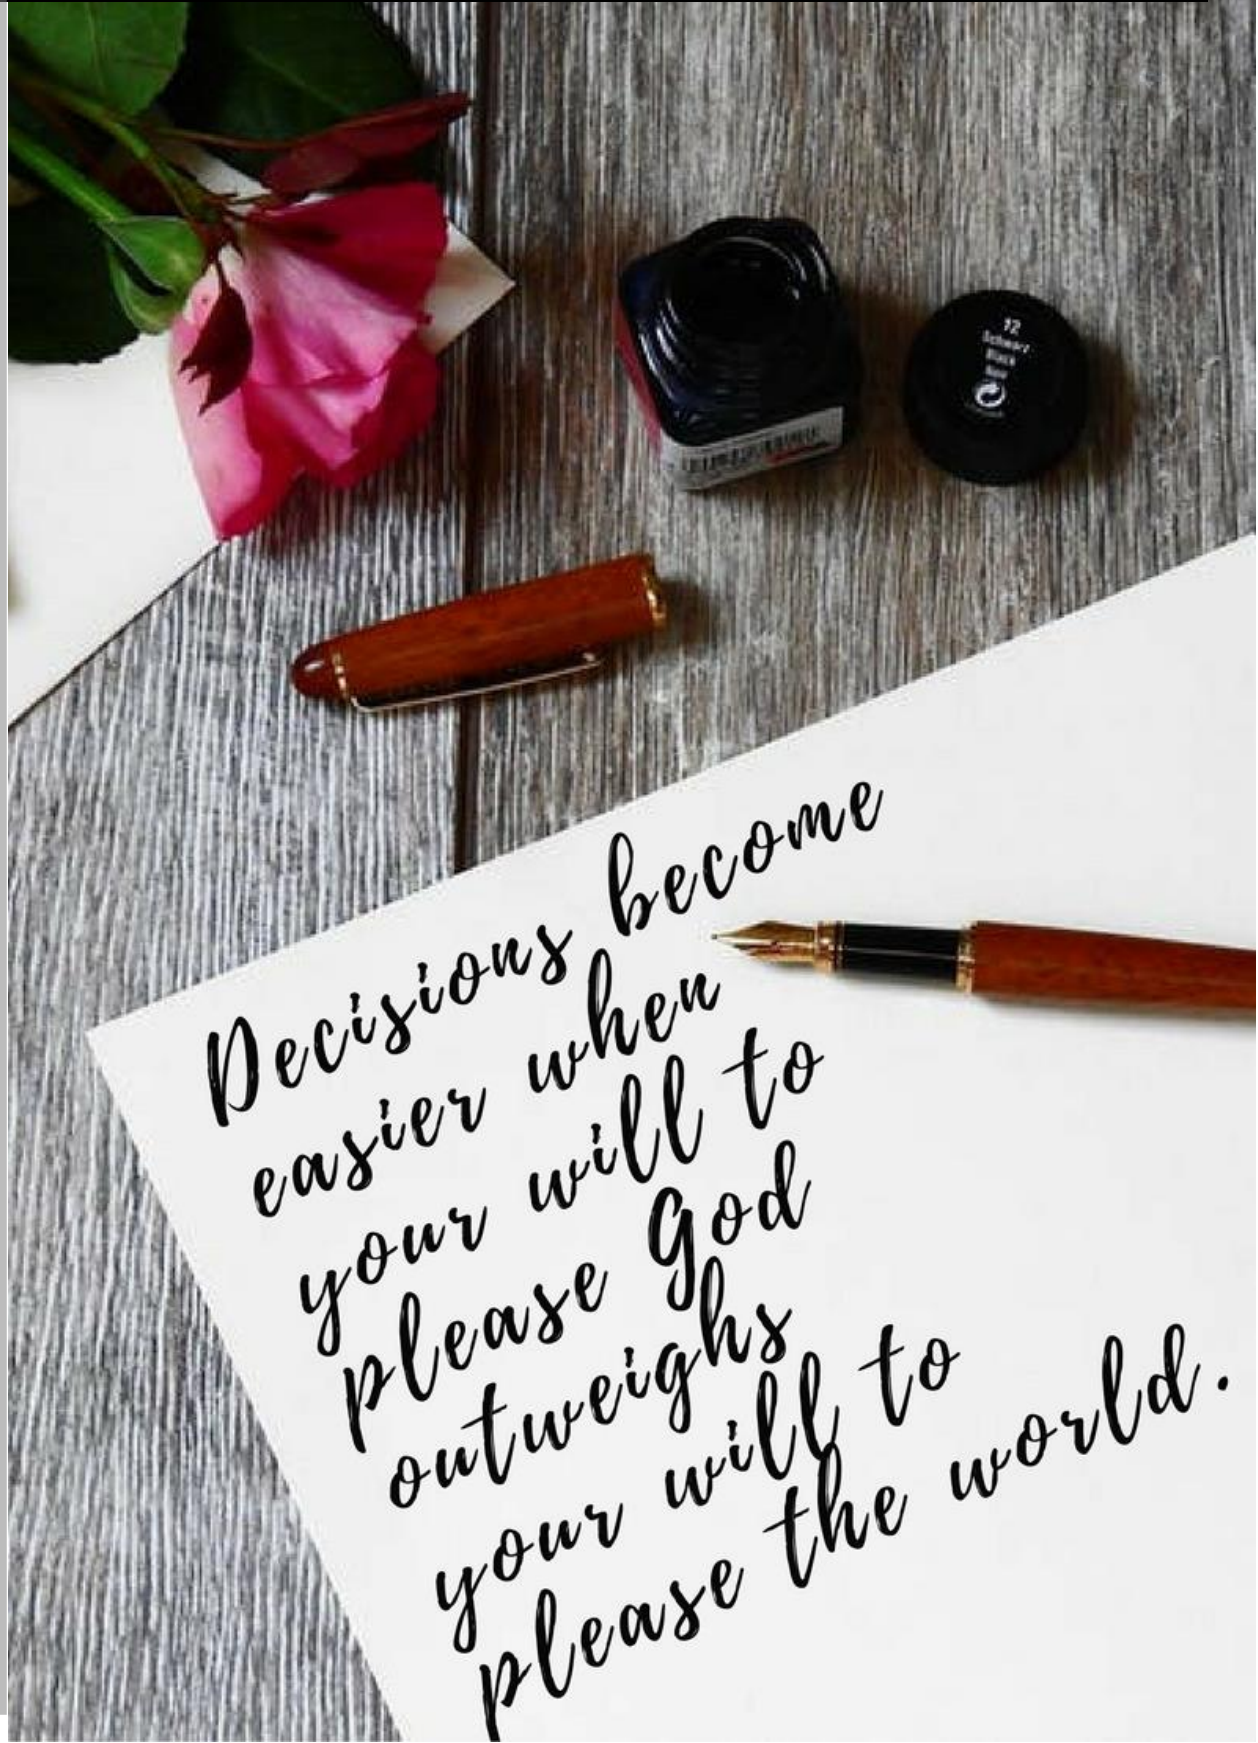 12
Schwarz
Black
Decisions become
easier when
your will to
please God
outweighs
your will to
please the world.